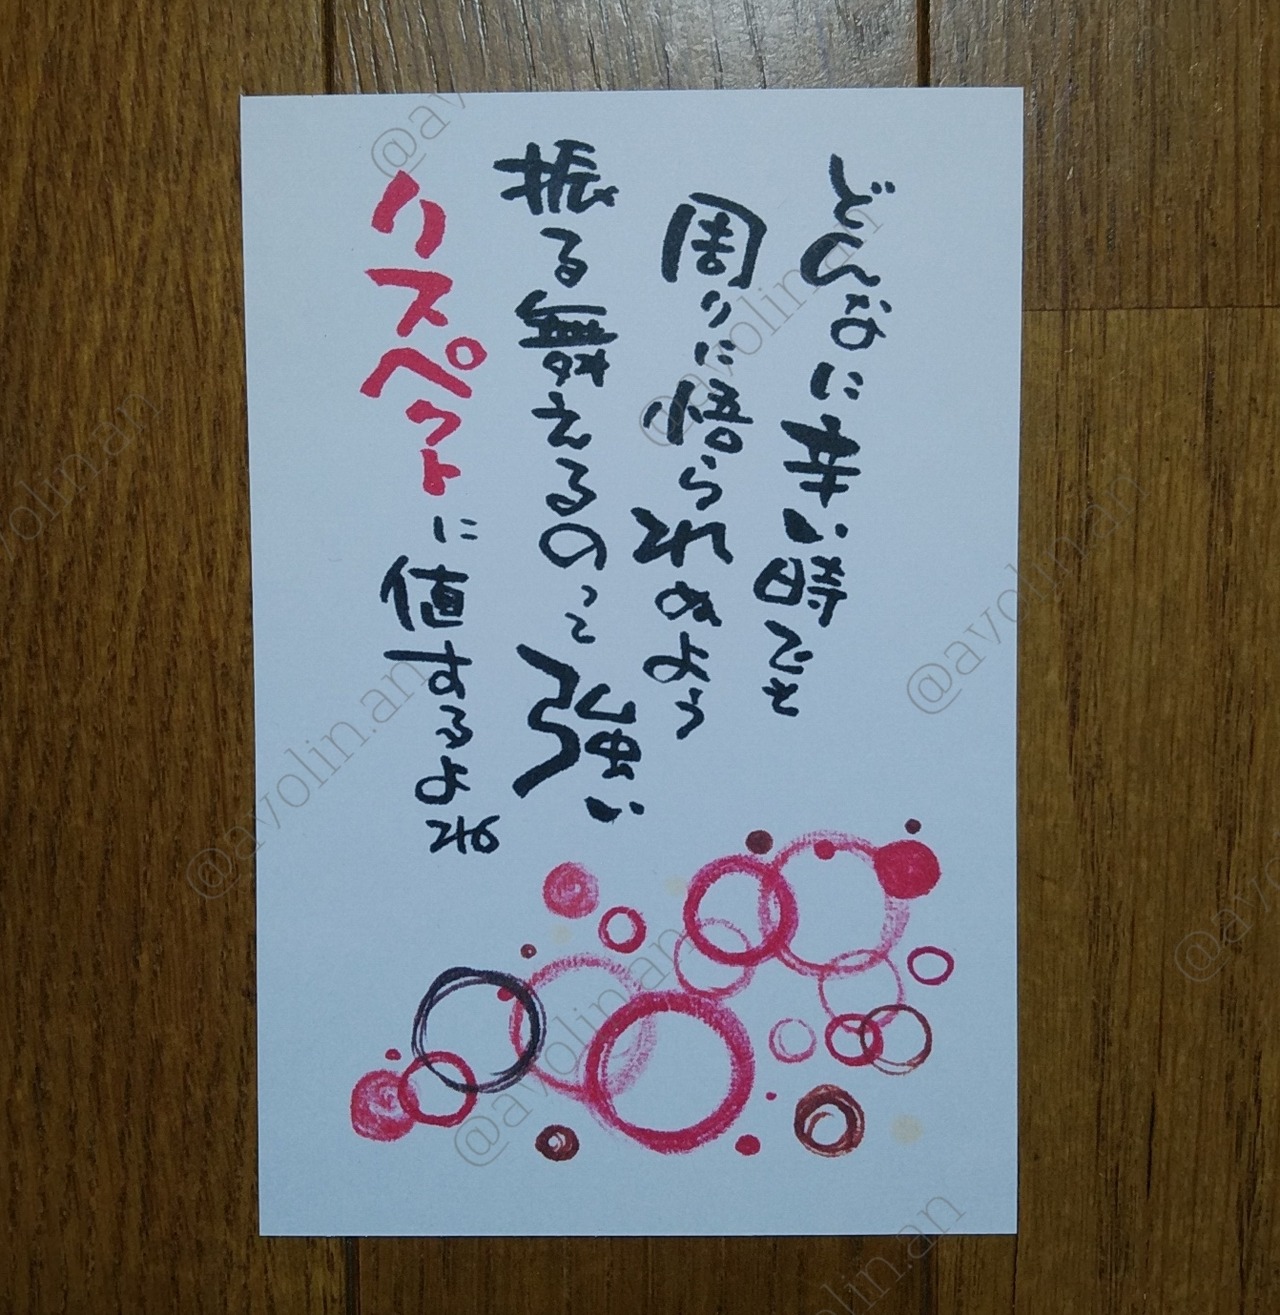 どんなに辛い時でも
周りに悟られぬよう
振る舞えるのって強い
リスペクトに値するよね
@avolin.an
@avolin.an
@avolin.an
@avolin.an
@avolin.an
@avolin.an